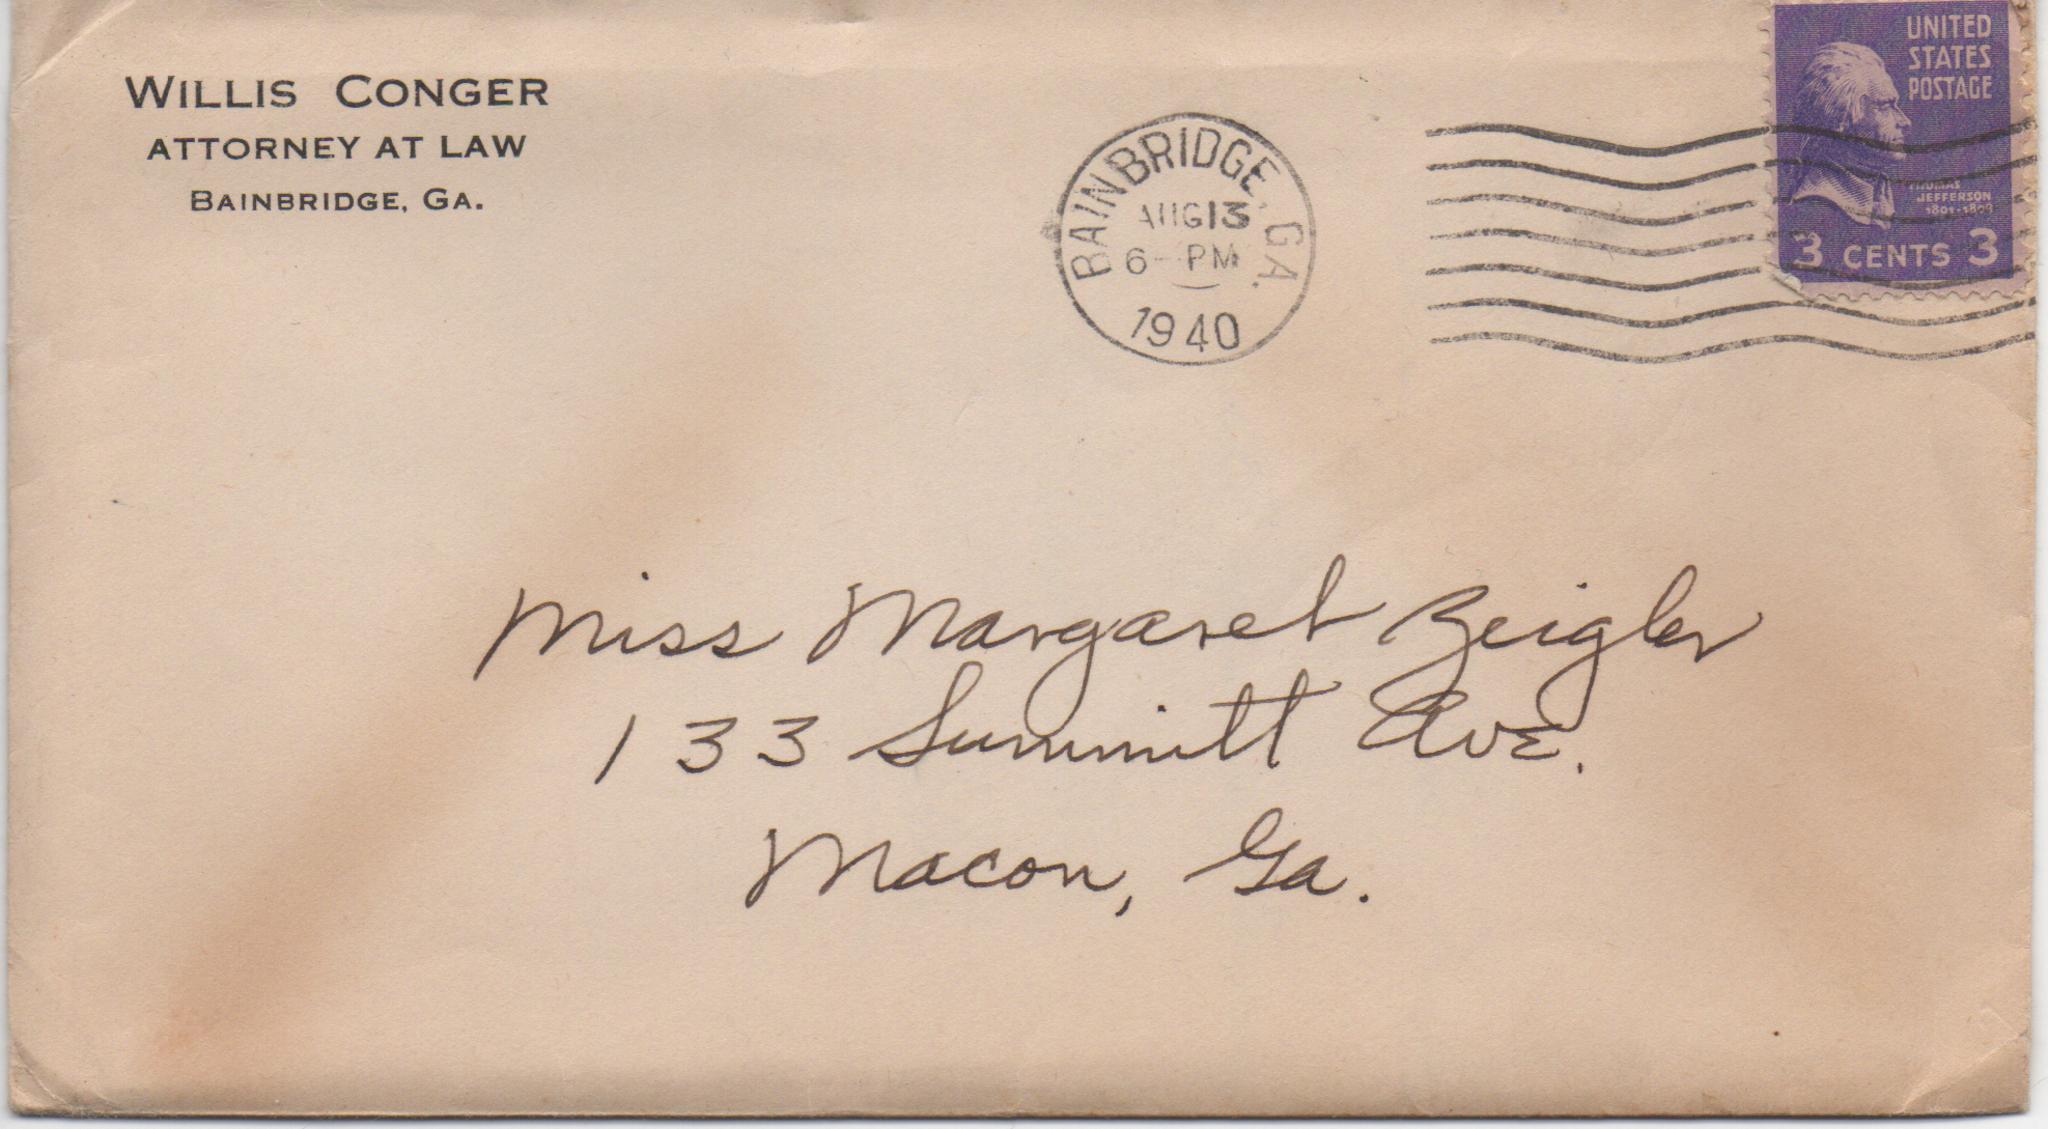 WILLIS CONGER
ATTORNEY AT LAW
BAINBRIDGE, GA.
BAINBRIDGE, GA.
AUG 13
6 - PM
1940
UNITED
STATES
POSTAGE
THOMAS
JEFFERSON
1801-1809
3 CENTS 3
Miss Margaret Zeigler
133 Summitt Ave.
Macon, Ga.